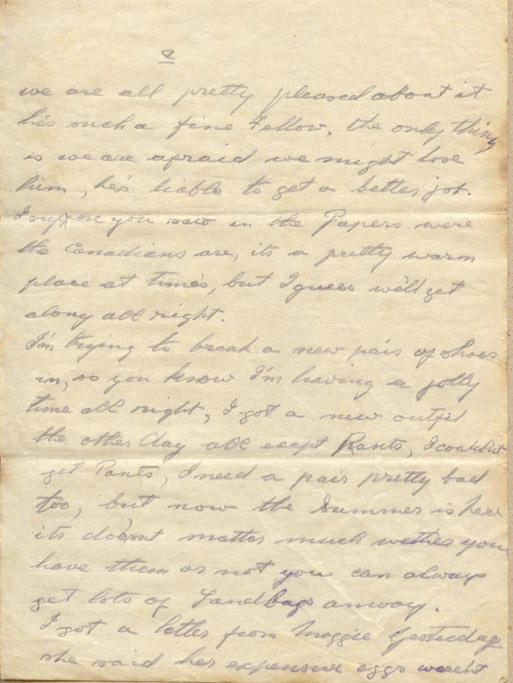 2
we are all pretty pleased about it
he's such a fine Fellow. the only thing
is we are afraid we might lose
him, he's liable to get a better job.
I suppose you saw in the Papers were
the Canadians are, its a pretty warm
place at times, but I guess we'll get
along all right.
I'm trying to break a new pair of shoes
in, so you know I'm having a jolly
time all right, I got a new outfit
the other day all except Pants, I couldn't
get Pants, I need a pair pretty bad
too, but now the Summer is here
its doesnt matter much wether you
have them or not you can always
get lots of Sandbags anway.
I got a letter from Maggie Yesterday
she said her expensive eggs weren't